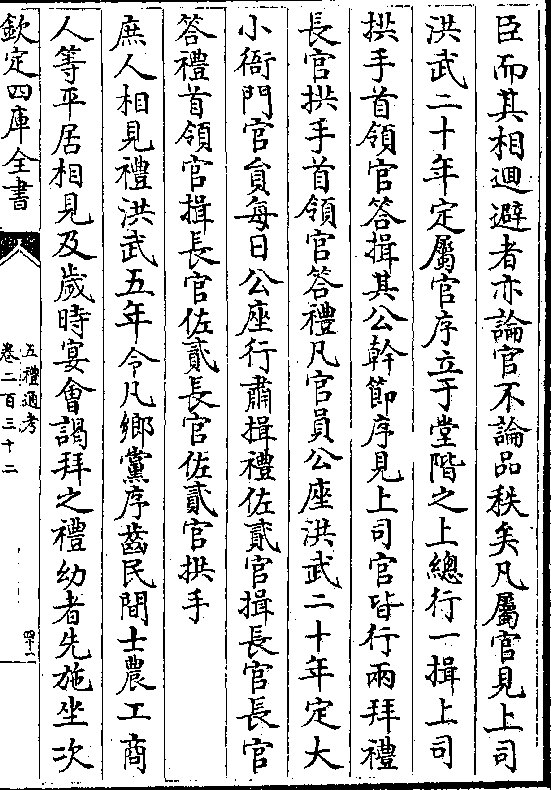 臣而其相迴避者亦論官不論品秩矣凡屬官見上司
洪武二十年定屬官序立于堂階之上總行一揖上司
拱手首領官答揖其公幹節序見上司官皆行兩拜禮
長官拱手首領官答禮凡官員公座洪武二十年定大
小衙門官員每日公座行肅揖禮佐貳官揖長官長官
答禮首領官揖長官佐貳長官佐貳官拱手
庶人相見禮洪武五年令凡鄉黨序齒民間士農工商
人等平居相見及歲時宴會謁拜之禮幼者先施坐次
欽定四庫全書
五禮通考
卷二百三十二
四十二